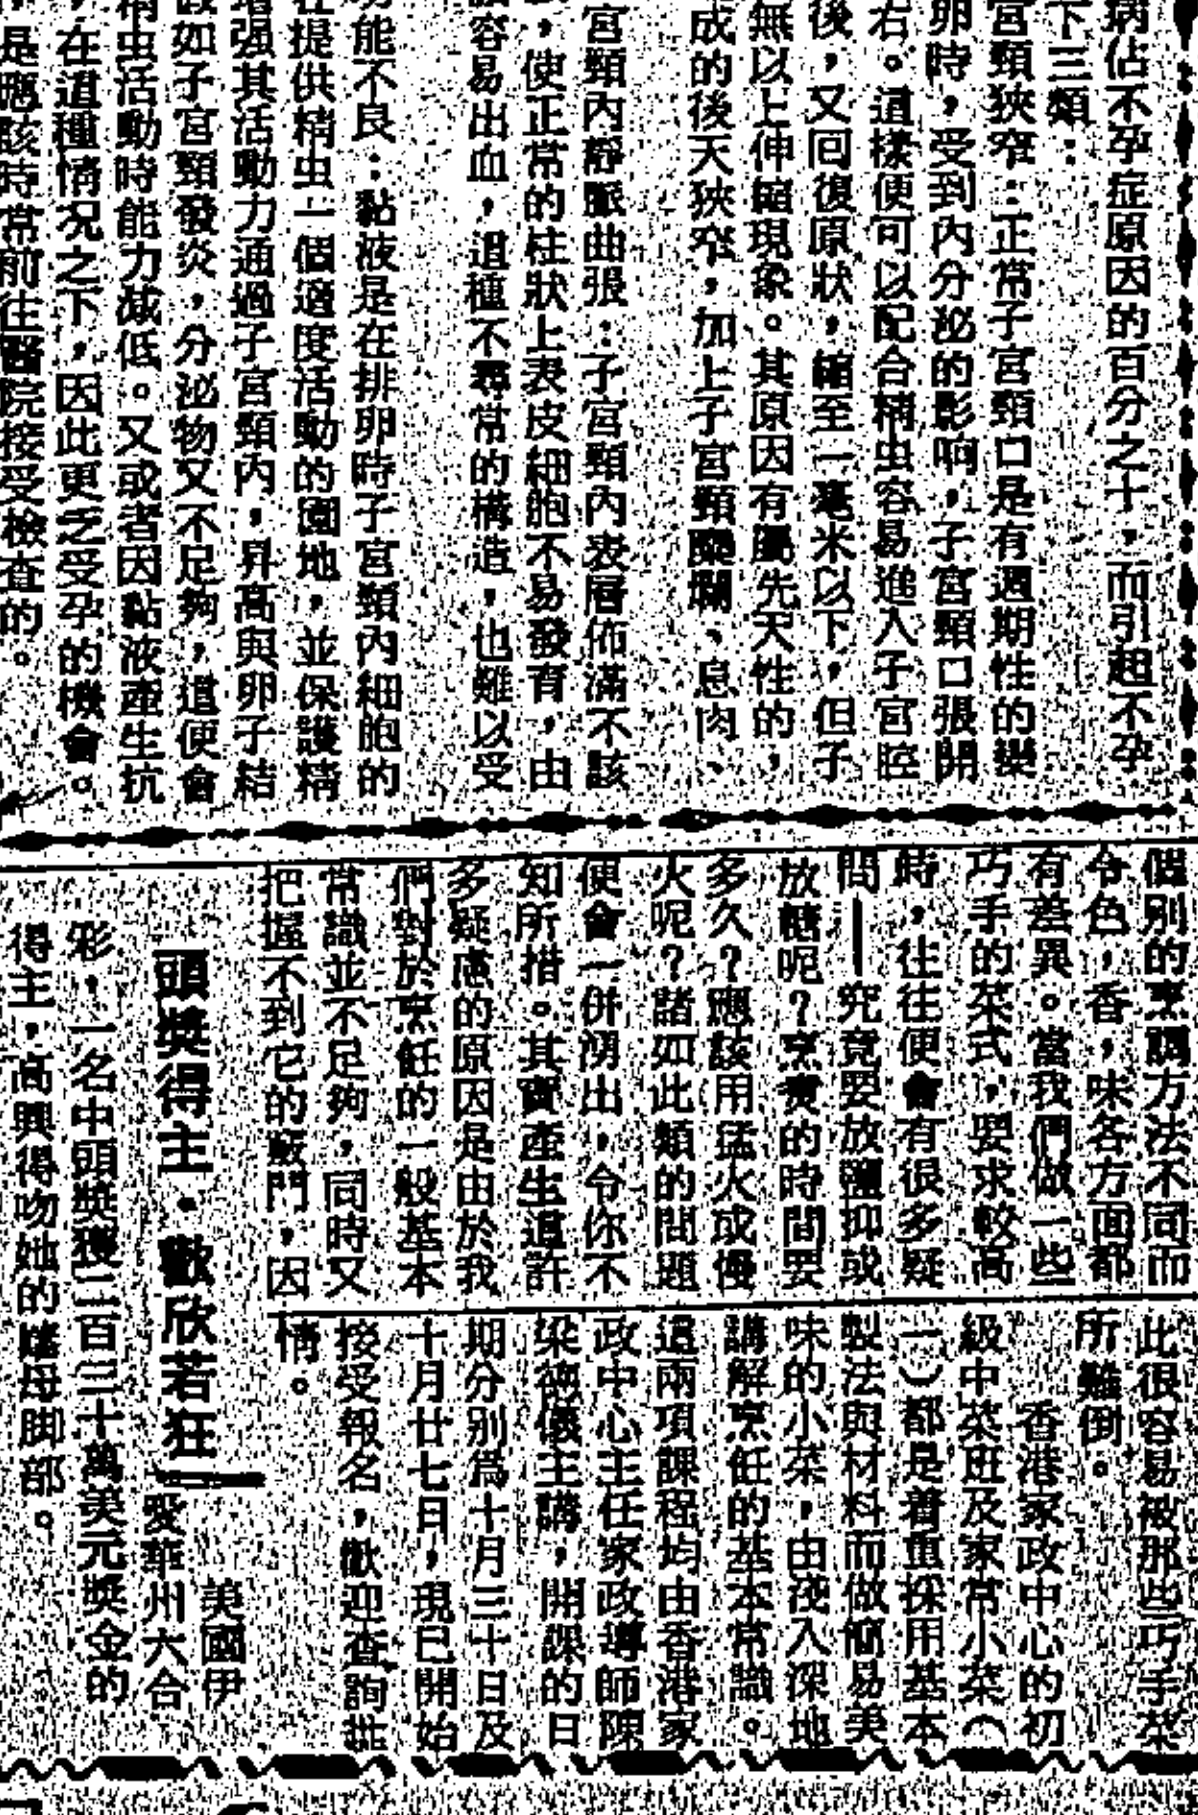 病佔不孕症原因的百分之十，而引起不孕
下三類：
宮頸狹窄：正常子宮頸口是有週期性的變
卵時，受到內分泌的影响，子宮頸口張開
右。這樣便可以配合精虫容易進入子宮腔
後，又回復原狀，縮至一毫米以下，但子
無以上伸縮現象。其原因有屬先天性的，
成的後天狹窄，加上子宮頸糜爛、息肉、
宮頸內靜脈曲張：子宮頸內表層佈滿不該
，使正常的柱狀上表皮細胞不易發育，由
容易出血，這種不尋常的構造，也難以受
能不良：黏液是在排卵時子宮頸內細胞的
在提供精虫一個適度活動的園地，並保護精
增强其活動力通過子宮頸內，昇高與卵子結
如子宮頸發炎，分泌物又不足夠，這便會
精虫活動時能力减低。又或者因黏液產生抗
，在這種情况之下，因此更乏受孕的機會。
，是應該時常前往醫院接受檢查的。
個別的烹調方法不同而
令色，香，味各方面都
有差異。當我們做一些
巧手的菜式，要求較高
時，往往便會有很多疑
問——究竟要放鹽抑或
放糖呢？烹煮的時間要
多久？應該用猛火或慢
火呢？諸如此類的問題
便會一併湧出，令你不
知所措。其實產生這許
多疑慮的原因是由於我
們對於烹飪的一般基本
常識並不足夠，同時又
把握不到它的竅門，因
此很容易被那些巧手菜
所難倒。
香港家政中心的初
級中菜班及家常小菜（
一）都是着重採用基本
製法與材料而做簡易美
味的小菜，由淺入深地
講解烹飪的基本常識。
這兩項課程均由香港家
政中心主任家政導師陳
梁德儀主講，開課的日
期分别爲十月三十日及
十月廿七日，現已開始
接受報名，歡迎查詢詳
情。
頭獎得主·歡欣若狂
美國伊
愛華州六合
彩，一名中頭獎獲二百三十萬美元獎金的
得主，高興得吻她的
母脚部。